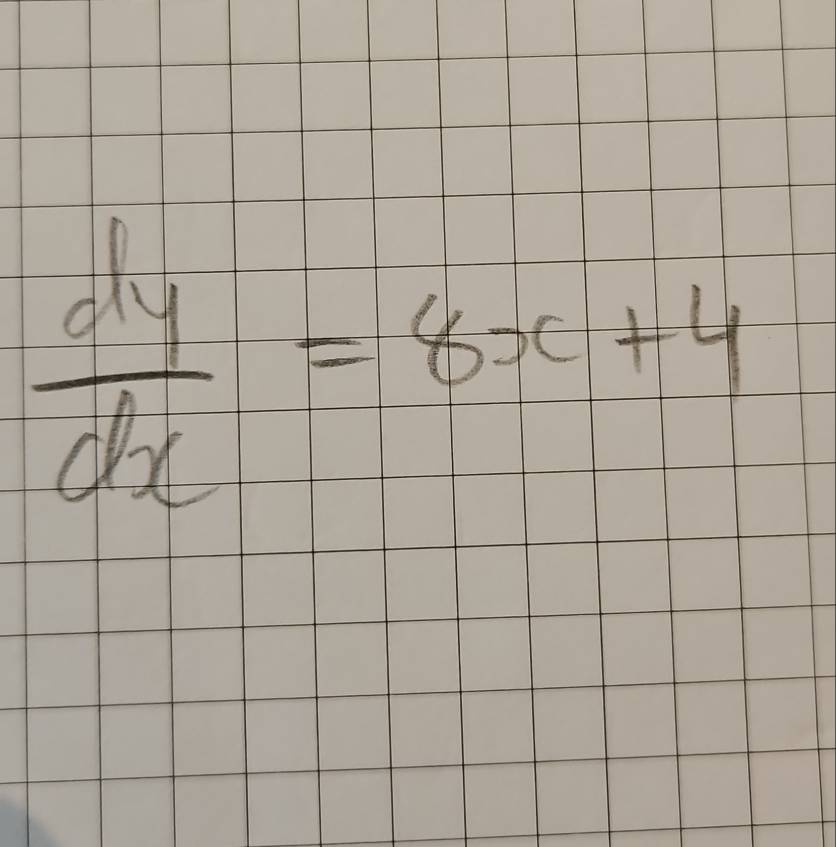 dy/dx = 8x + 4